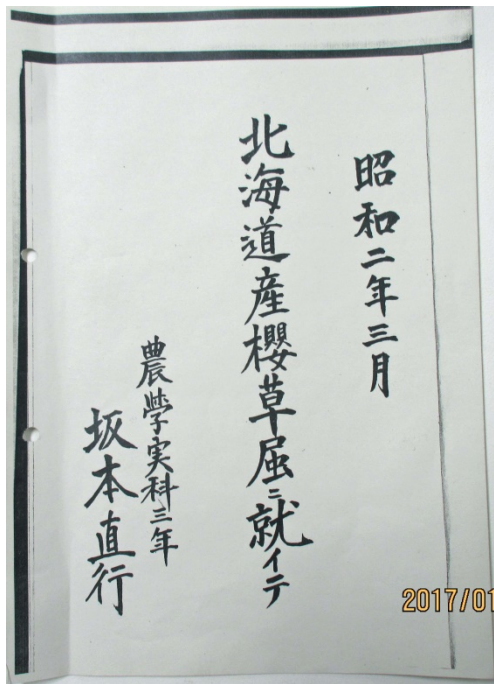 昭和二年三月
北海道産櫻草屈ニ就イテ
農学実科三年
坂本直行
2017/01